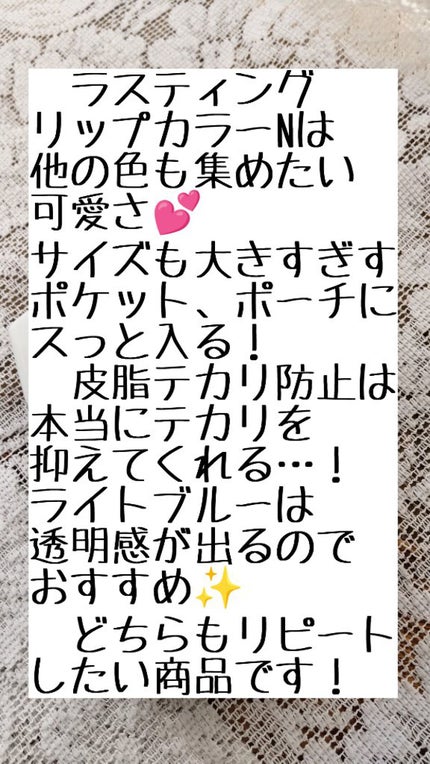 ラスティング
リップカラーNは
他の色も集めたい
可愛さ💕
サイズも大きすぎす
ポケット、ポーチに
スっと入る！
　皮脂テカリ防止は
本当にテカリを
抑えてくれる…！
ライトブルーは
透明感が出るので
おすすめ✨
　どちらもリピート
したい商品です！